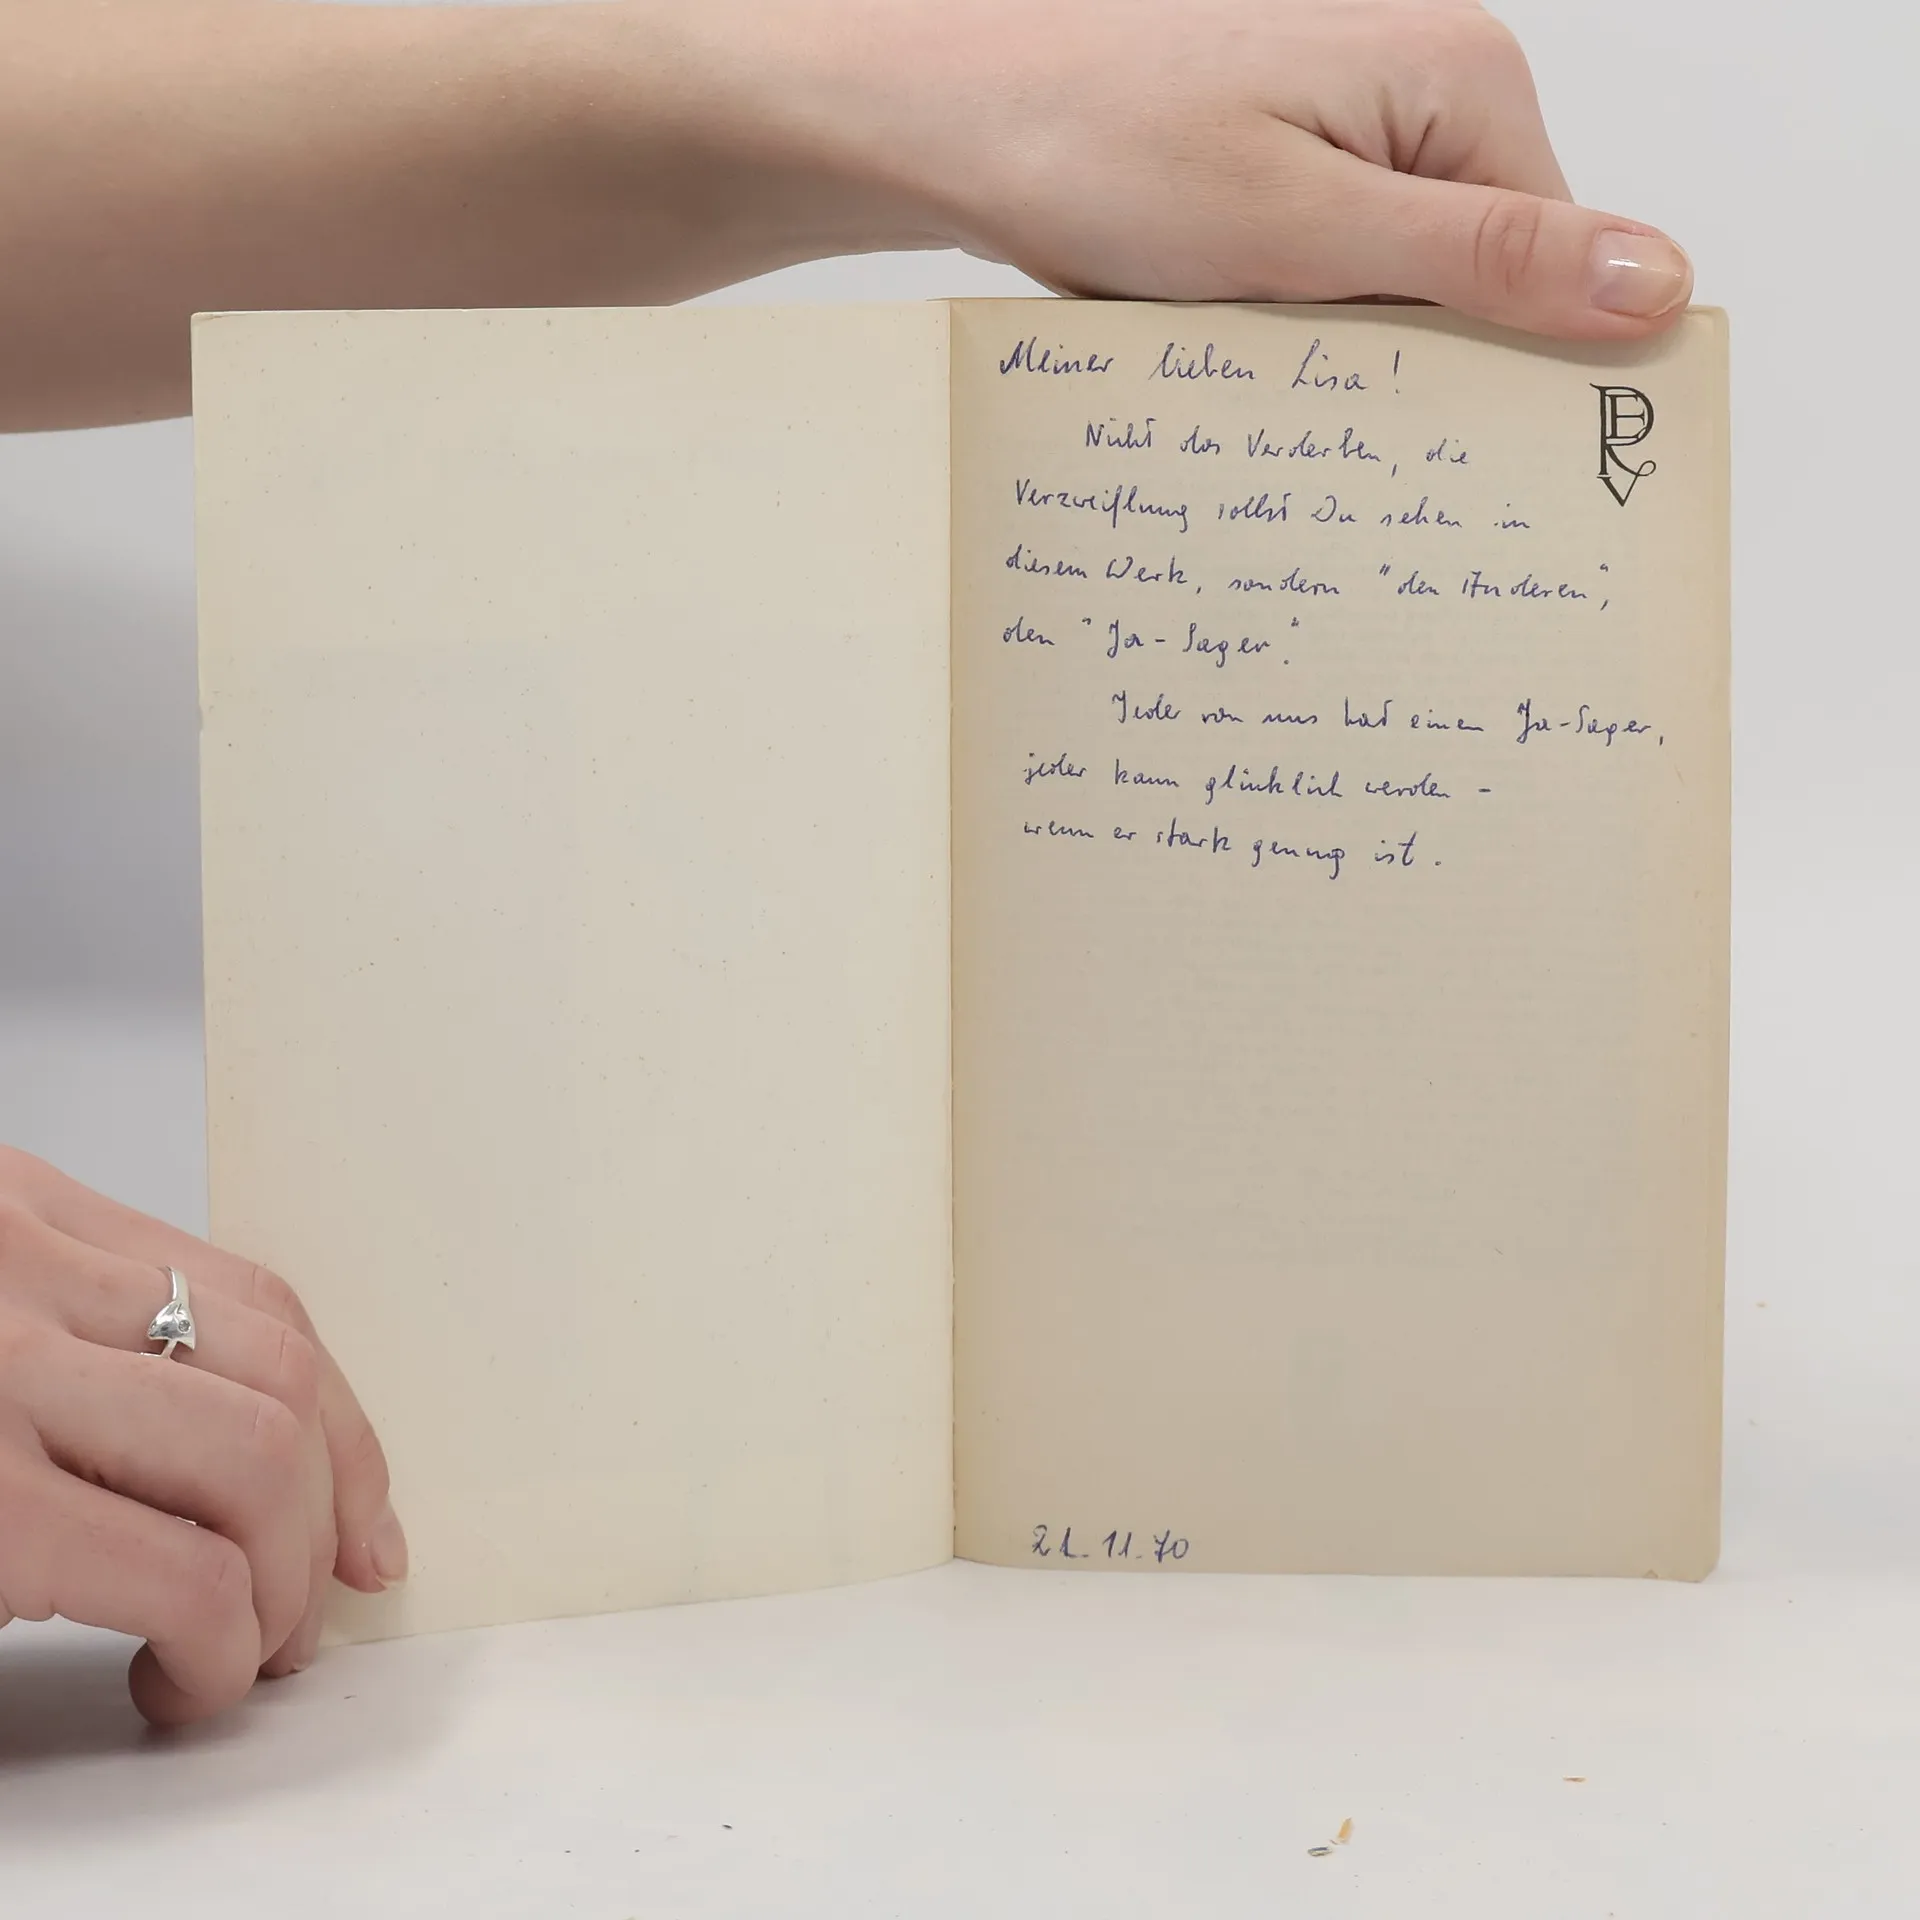 Meiner lieben Lisa!
Nicht das Verderben, die
Verzweiflung sollst Du sehen in
diesem Werk, sondern "den Anderen",
den "Ja-Sager".
Jeder von uns hat einen Ja-Sager,
jeder kann glücklich werden -
wenn er stark genug ist.
21.11.70